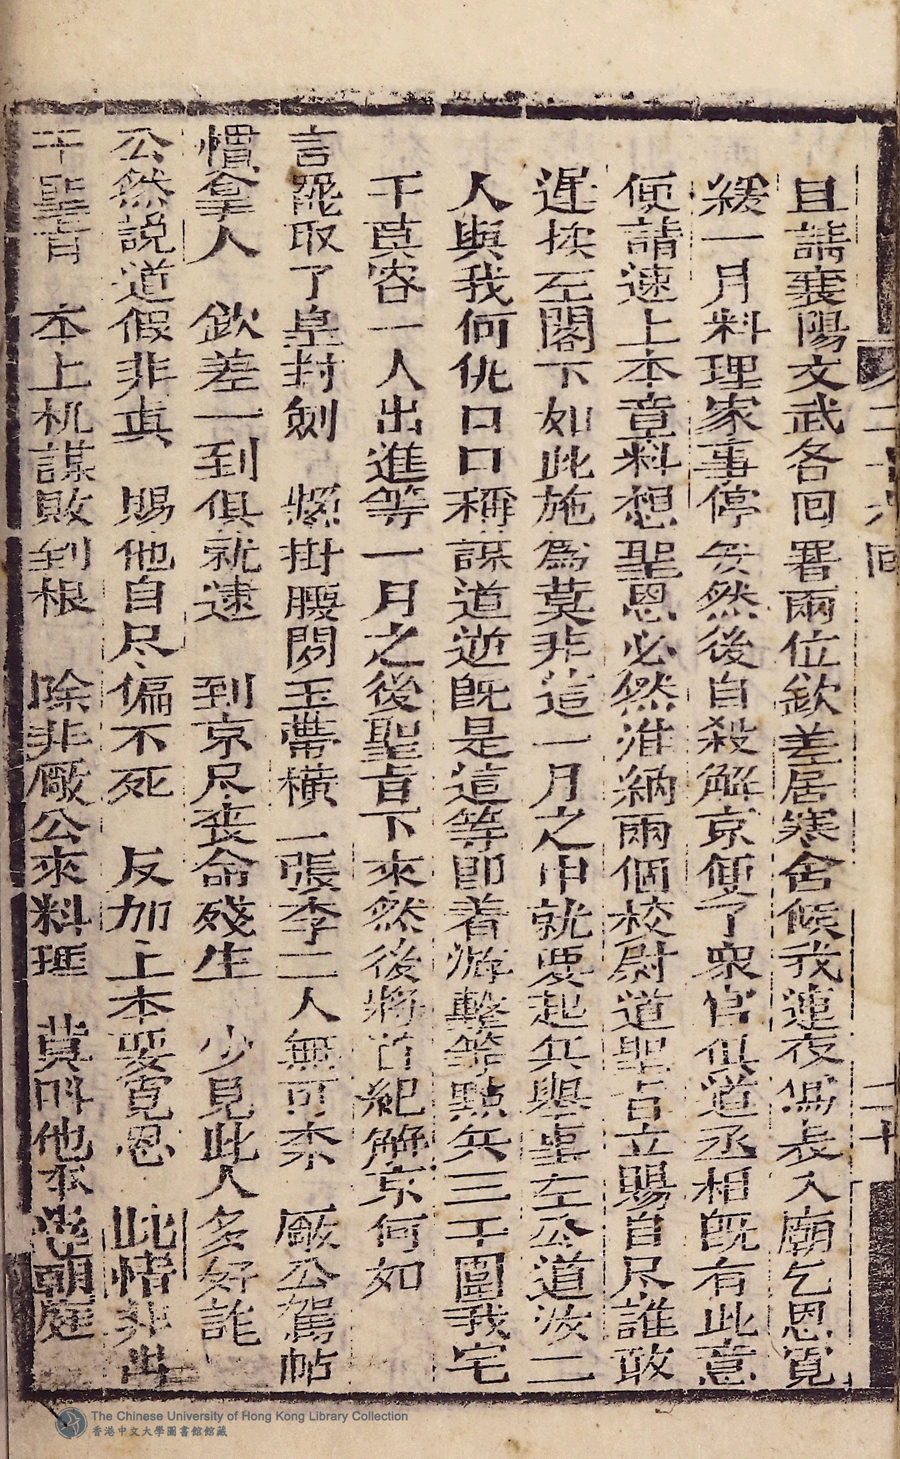 二十九回
二十
且請襄陽文武各回署兩位欽差居寒舍候我連夜寫表入廟乞恩寬
緩一月料理家事停妥然後自殺解京便了衆官俱道丞相既有此意
便請速上本章料想聖恩必然准納兩個校尉道聖旨立賜自尽誰敢
遲挨左閣下如此施為莫非這一月之中就要起兵舉事左公道汝二
人與我何仇口口稱謀道逆既是這等即着游擊等點兵三千圍我宅
千莫容一人出進等一月之後聖旨下來然後將首紀解京何如
言罷取了皇封劍 懸掛腰間玉帶橫 張李二人無可奈 厰公駕帖
慣拿人 欽差一到俱就逮 到京尽喪命殘生 少見此人多好詫
公然説道假非真 賜他自尽偏不死 反加上本要寬恩 此情非出
干聖旨 本上机謀敗到根 除非厰公來料理 莫叫他本 朝庭
The Chinese University of Hong Kong Library Collection
香港中文大學圖書館館藏